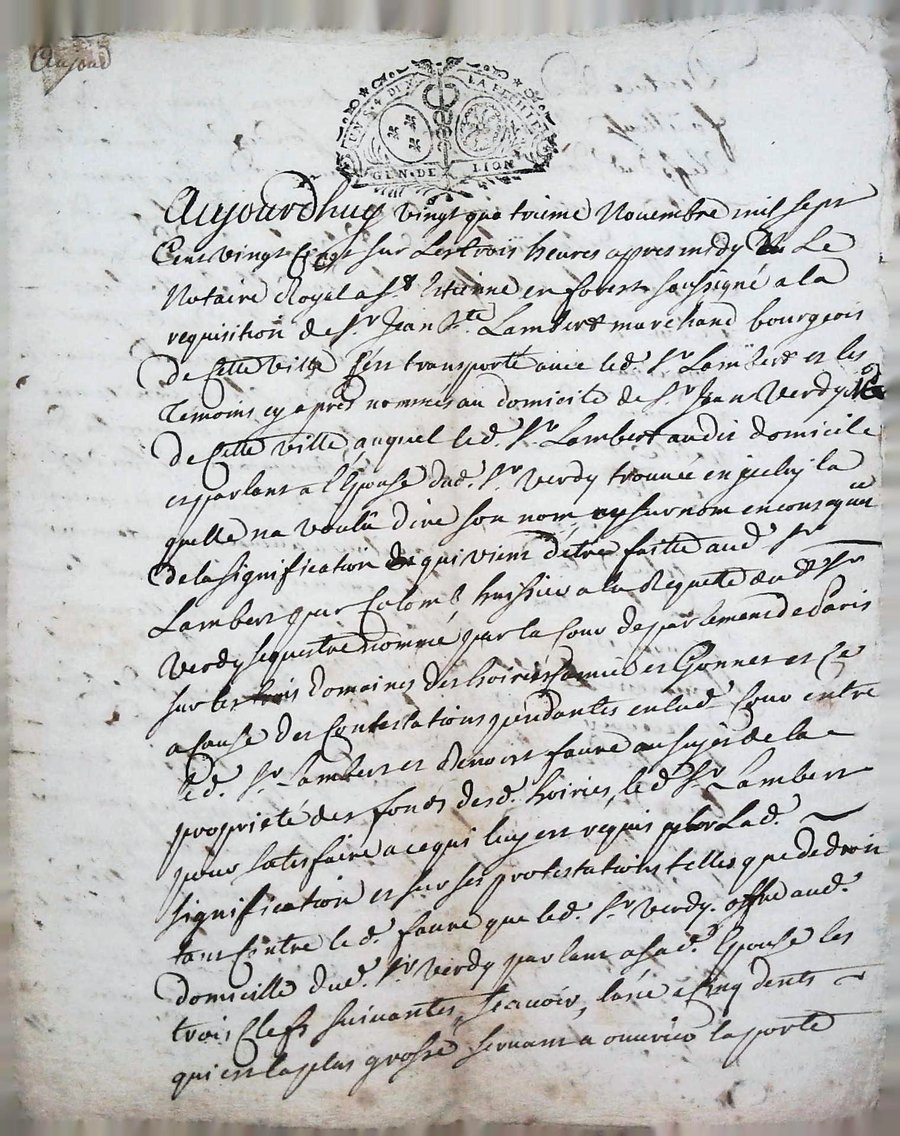 Aujourd
UN S 4 DEN LA FEUILLE
GEN. DE LION
Aujourdhuy vingt quatrieme Novembre mil sept
Cent vingt Cinq sur les trois heures apres midy Le
Notaire Royal a St Etienne en forest soussigné a la
requisition de Sr Jean Bte Lambert marchand bourgeois
de Cette ville s'est transporté avec led. Sr Lambert et les
temoins cy apres nommés au domicile de Sr Jean Verdy
de Cette ville, auquel led. Sr Lambert audit domicile
et parlant a l'Epouse dud. Sr Verdy trouvée en jceluy la
quelle na voulû dire son nom ny surnom en consequence
de la signification qui vient d'être faitte aud Sr
Lambert par Colomb huissier a la Requete du d Sr
Verdy sequestre nommé par la Cour de parlement de Paris
sur les trois domaines des hoiries et Gonnet et Ce
a Cause des Contestations pendantes en lad. Cour entre
led. Sr Lambert et Benoist faure au sujet de la
proprieté des fonds desd. hoiries, led Sr Lambert
pour satisfaire a ce qui luy est requis par Lad.
signification et sur ses protestations telles que de droit
tant Contre led. faure que led. Sr Verdy. offre aud.
domicille dud. Sr Verdy parlant a sad. Epouse les
trois Clefs suivantes, scavoir, l'une a Cinq dents
qui est la plus grosse servant a ouvrir la porte